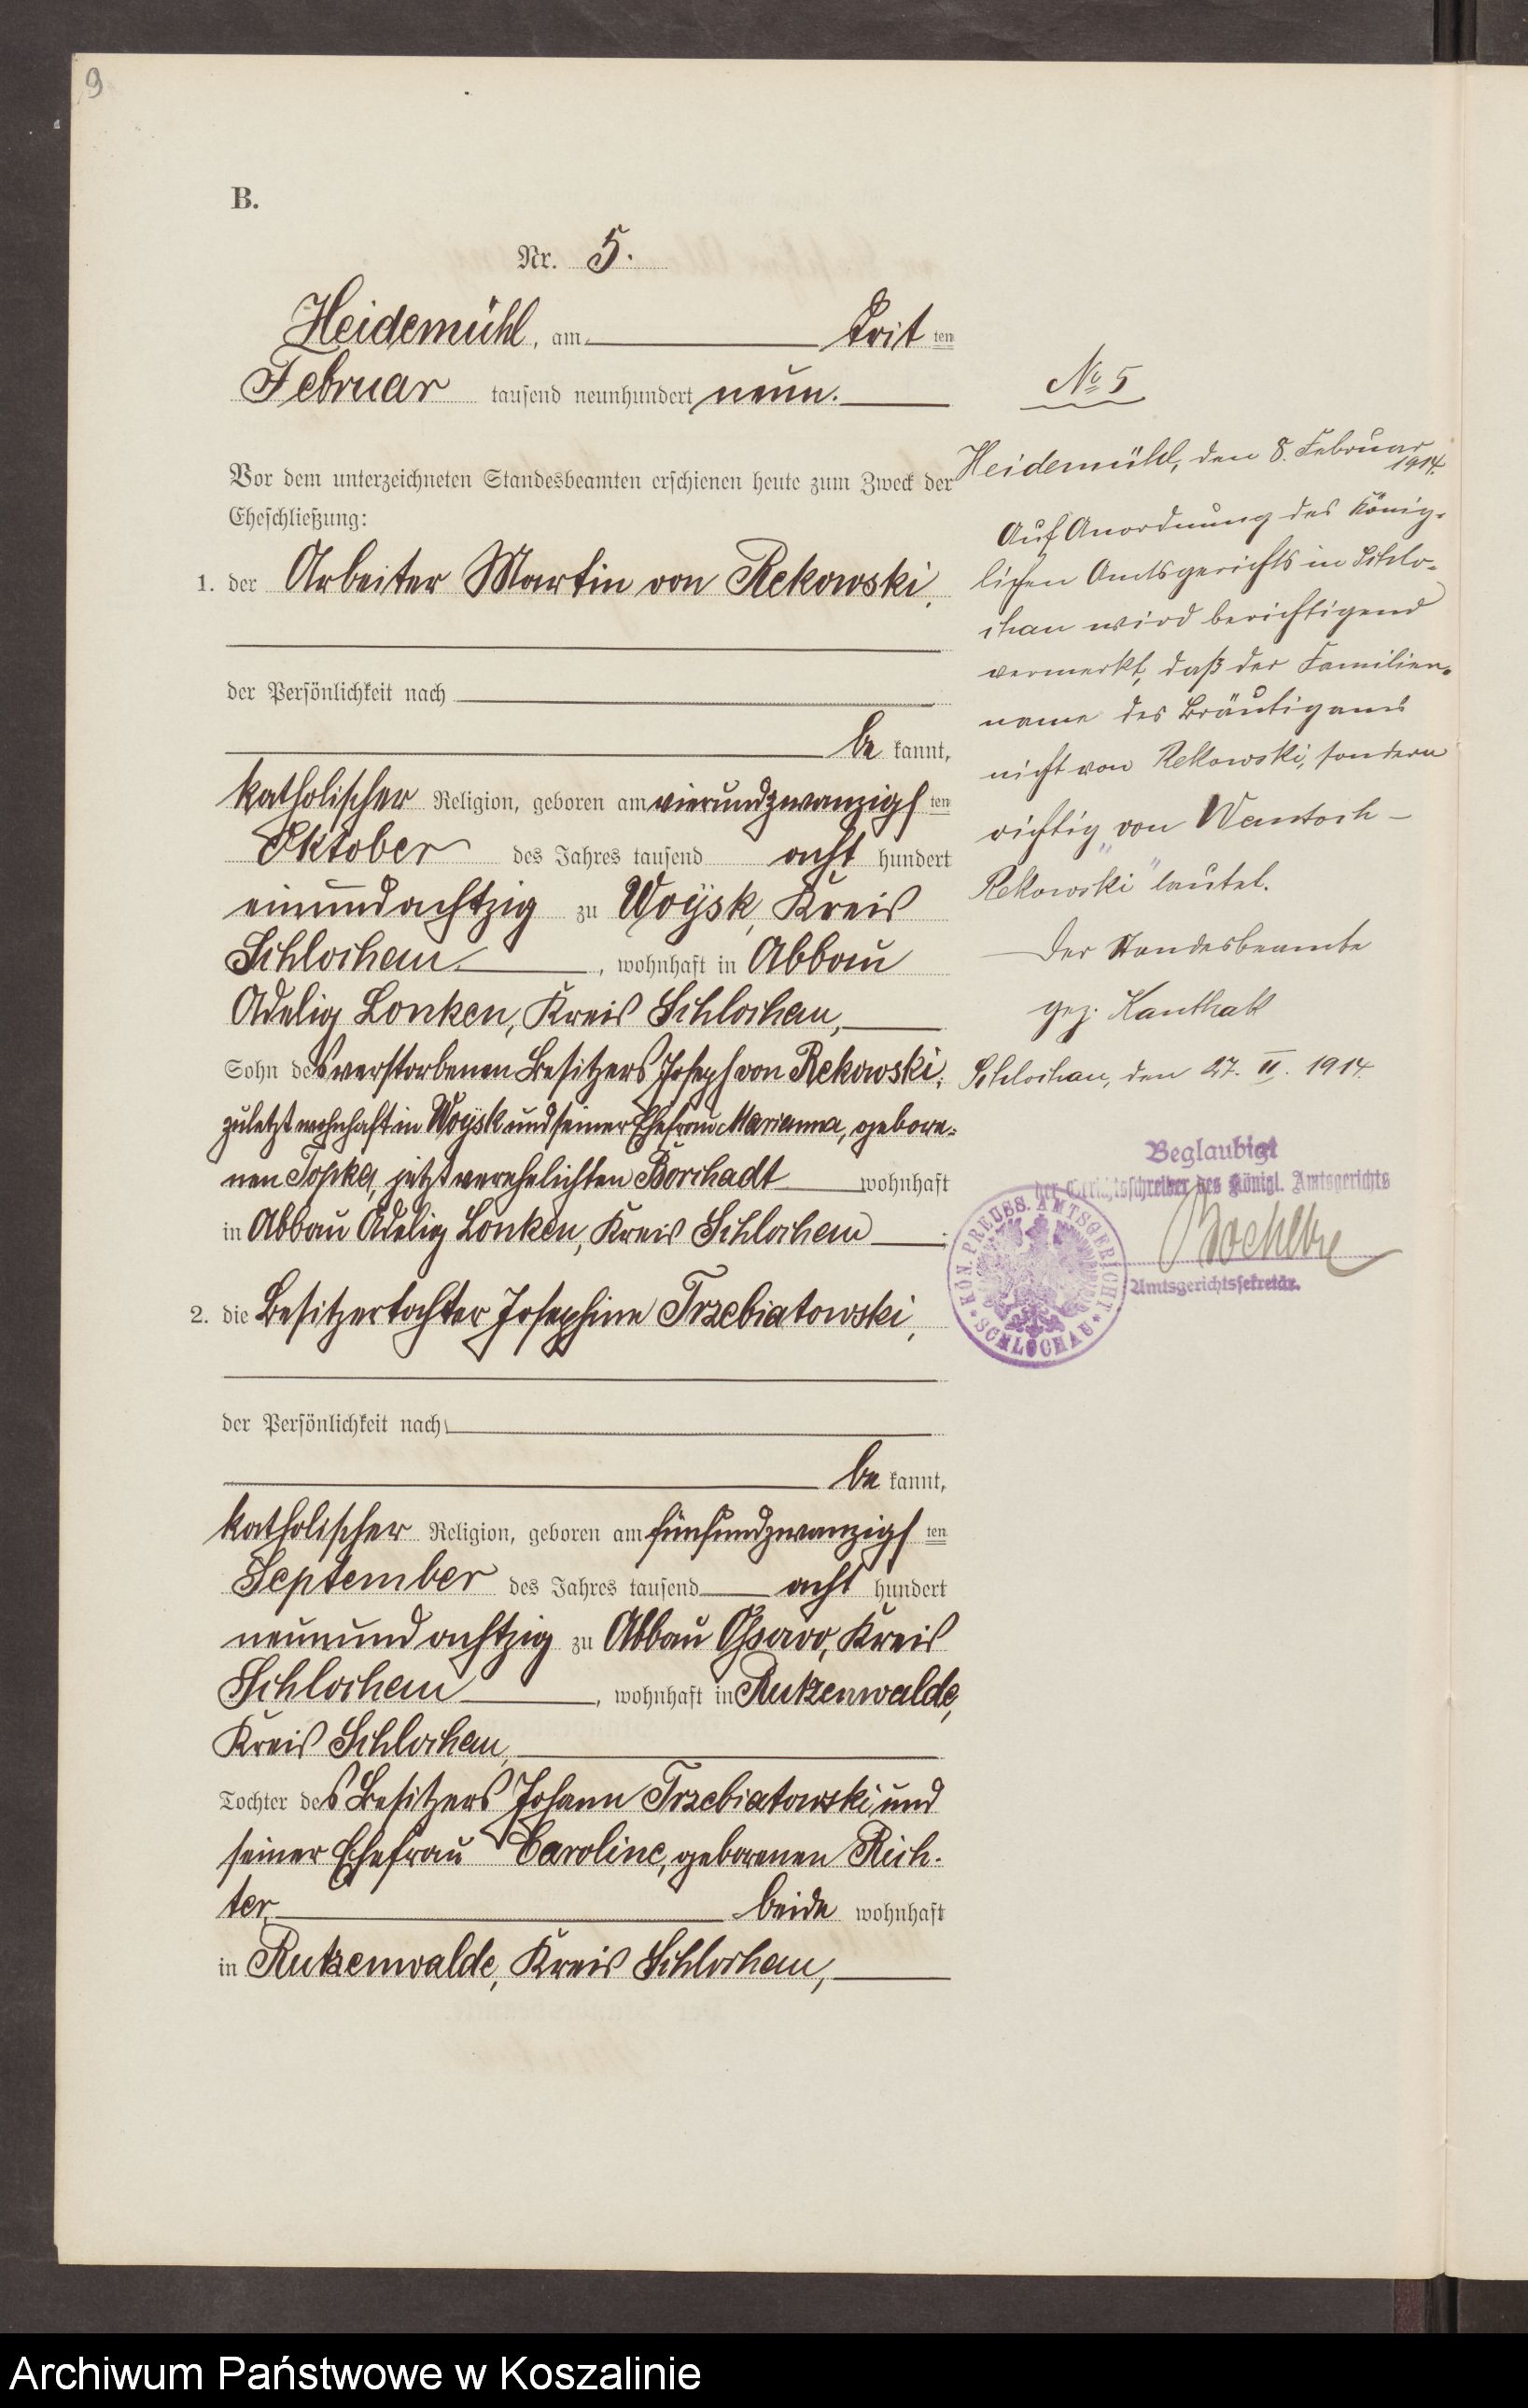 9
B.
Nr. 5.
Heidemühl, am drit ten
Februar tausend neunhundert neun.
Vor dem unterzeichneten Standesbeamten erschienen heute zum Zweck der
Eheschließung:
1. der Arbeiter Martin von Rekowski,
der Persönlichkeit nach
be kannt,
katholischer Religion, geboren am vierundzwanzigs ten
Oktober des Jahres tausend acht hundert
einundachtzig zu Woysk, Kreis
Schlochau, wohnhaft in Abbau
Adelig Lonken, Kreis Schlochau,
Sohn des verstorbenen Besitzers Joseph von Rekowski,
zuletzt wohnhaft in Woysk und seiner Ehefrau Marianna, gebore-
nen Topka, jetzt verehelichten Borchadt wohnhaft
in Abbau Adelig Lonken, Kreis Schlochau ;
2. die Besitzertochter Josephine Trzebiatowski,
der Persönlichkeit nach
be kannt,
katholischer Religion, geboren am fünfundzwanzigs ten
September des Jahres tausend acht hundert
neunundachtzig zu Abbau Kreis
Schlochau, wohnhaft in Rutzenwalde,
Kreis Schlochau,
Tochter des Besitzers Johann Trzebiatowski und
seiner Ehefrau Caroline, geborenen Rich-
ter, beide wohnhaft
in Rutzenwalde, Kreis Schlochau,
No 5
Heidemühl, den 8. Februar
1914.
Auf Anordnung des König-
lichen Amtsgerichts in Schlo-
chau wird berichtigend
vermerkt, daß der Familien-
name des Bräutigams
nicht von Rekowski, sondern
richtig „von Wantoch-
Rekowski" lautet.
Der Standesbeamte
gez. Kanthak
Schlochau, den 27. II. 1914.
Beglaubigt
der Gerichtsschreiber des Königl. Amtsgerichts
Amtsgerichtssekretär.
KÖN. PREUSS. AMTSGERICHT
* SCHLOCHAU *
Archiwum Państwowe w Koszalinie